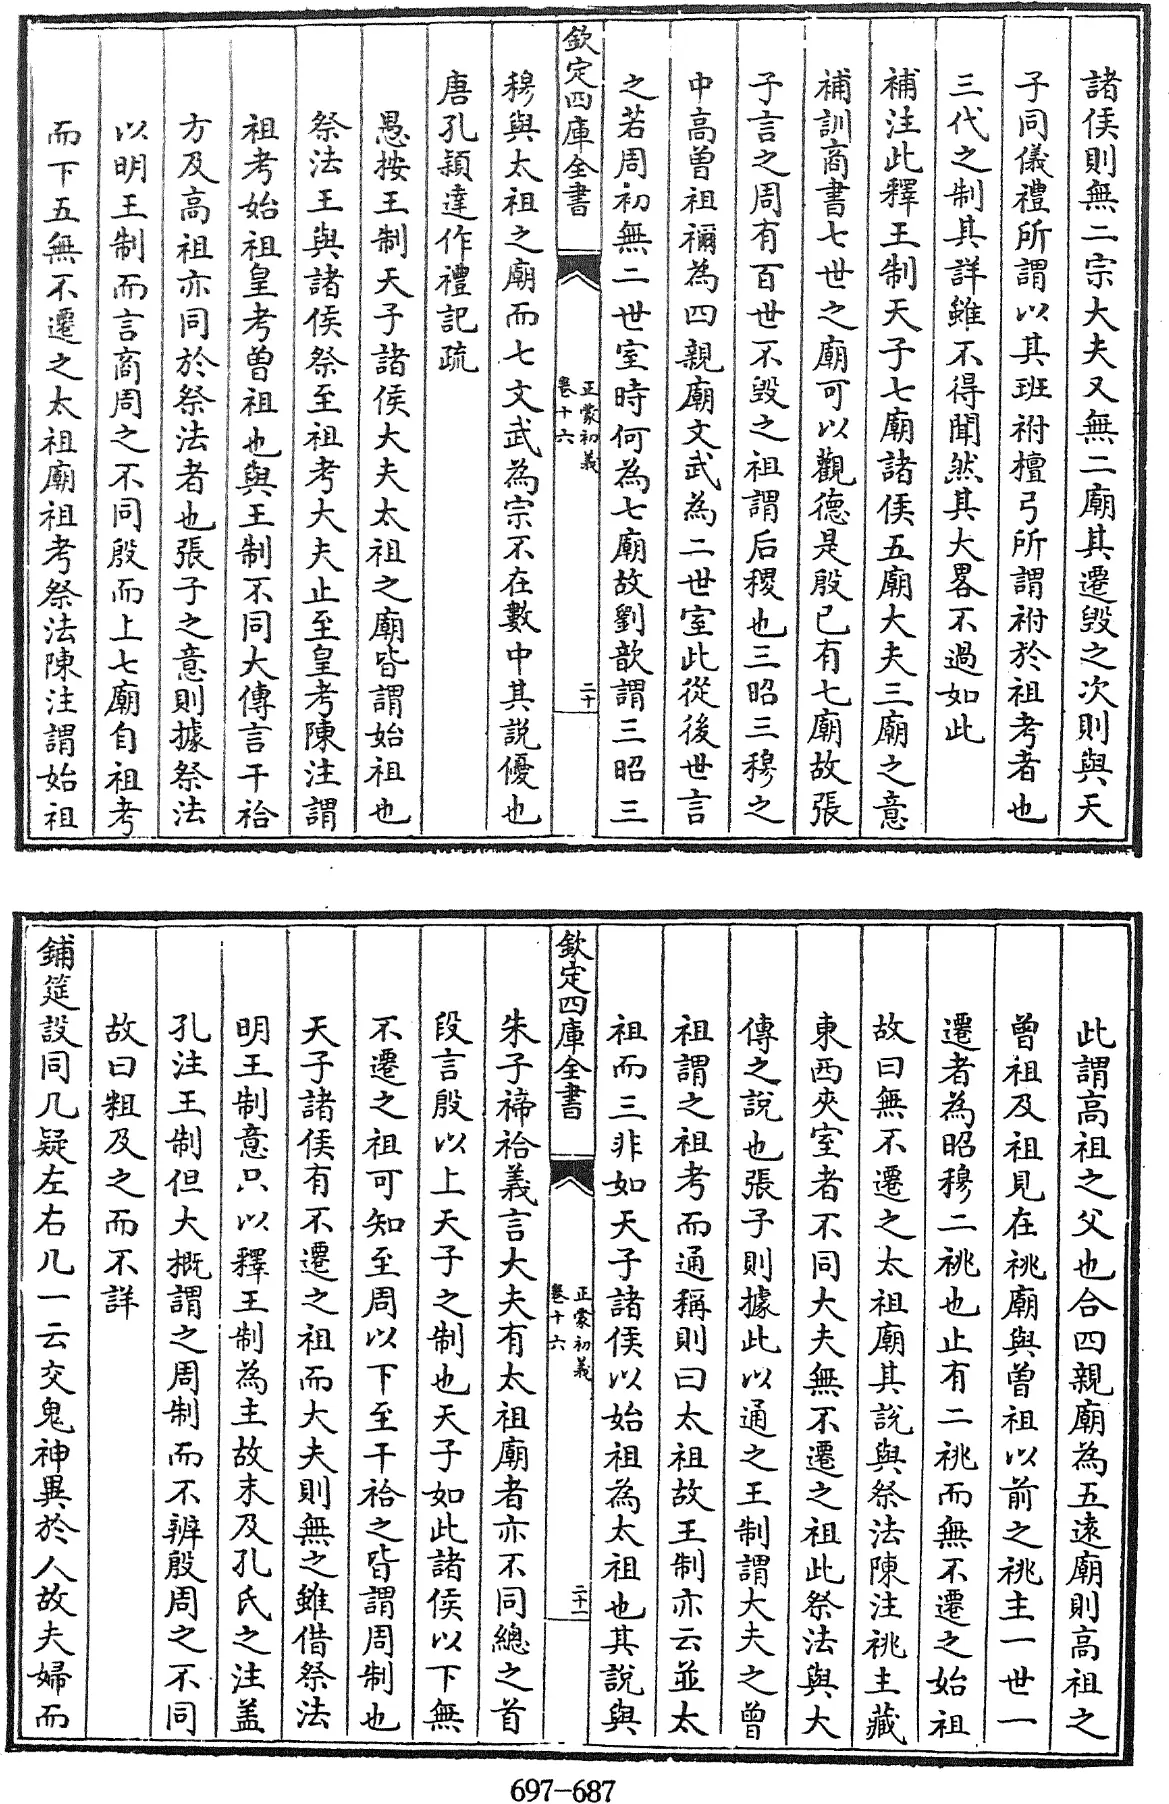 諸侯則無二宗大夫又無二廟其遷毀之次則與天
子同儀禮所謂以其班祔檀弓所謂祔於祖考者也
三代之制其詳雖不得聞然其大畧不過如此
補注此釋王制天子七廟諸侯五廟大夫三廟之意
補訓商書七世之廟可以觀德是殷已有七廟故張
子言之周有百世不毀之祖謂后稷也三昭三穆之
中高曾祖禰為四親廟文武為二世室此從後世言
之若周初無二世室時何為七廟故劉歆謂三昭三
欽定四庫全書
正蒙初義
卷十六
二十
穆與太祖之廟而七文武為宗不在數中其説優也
唐孔穎達作禮記疏
愚按王制天子諸侯大夫太祖之廟皆謂始祖也
祭法王與諸侯祭至祖考大夫止至皇考陳注謂
祖考始祖皇考曾祖也與王制不同大傳言干祫
方及高祖亦同於祭法者也張子之意則據祭法
以明王制而言商周之不同殷而上七廟自祖考
而下五無不遷之太祖廟祖考祭法陳注謂始祖
此謂高祖之父也合四親廟為五遠廟則高祖之
曾祖及祖見在祧廟與曾祖以前之祧主一世一
遷者為昭穆二祧也止有二祧而無不遷之始祖
故曰無不遷之太祖廟其說與祭法陳注祧主藏
東西夾室者不同大夫無不遷之祖此祭法與大
傳之說也張子則據此以通之王制謂大夫之曾
祖謂之祖考而通稱則曰太祖故王制亦云並太
祖而三非如天子諸侯以始祖為太祖也其說與
欽定四庫全書
正蒙初義
卷十六
二十一
朱子禘祫義言大夫有太祖廟者亦不同總之首
段言殷以上天子之制也天子如此諸侯以下無
不遷之祖可知至周以下至干祫之皆謂周制也
天子諸侯有不遷之祖而大夫則無之雖借祭法
明王制意只以釋王制為主故末及孔氏之注盖
孔注王制但大概謂之周制而不辨殷周之不同
故曰粗及之而不詳
鋪筵設同几疑左右几一云交鬼神異於人故夫婦而
697-687